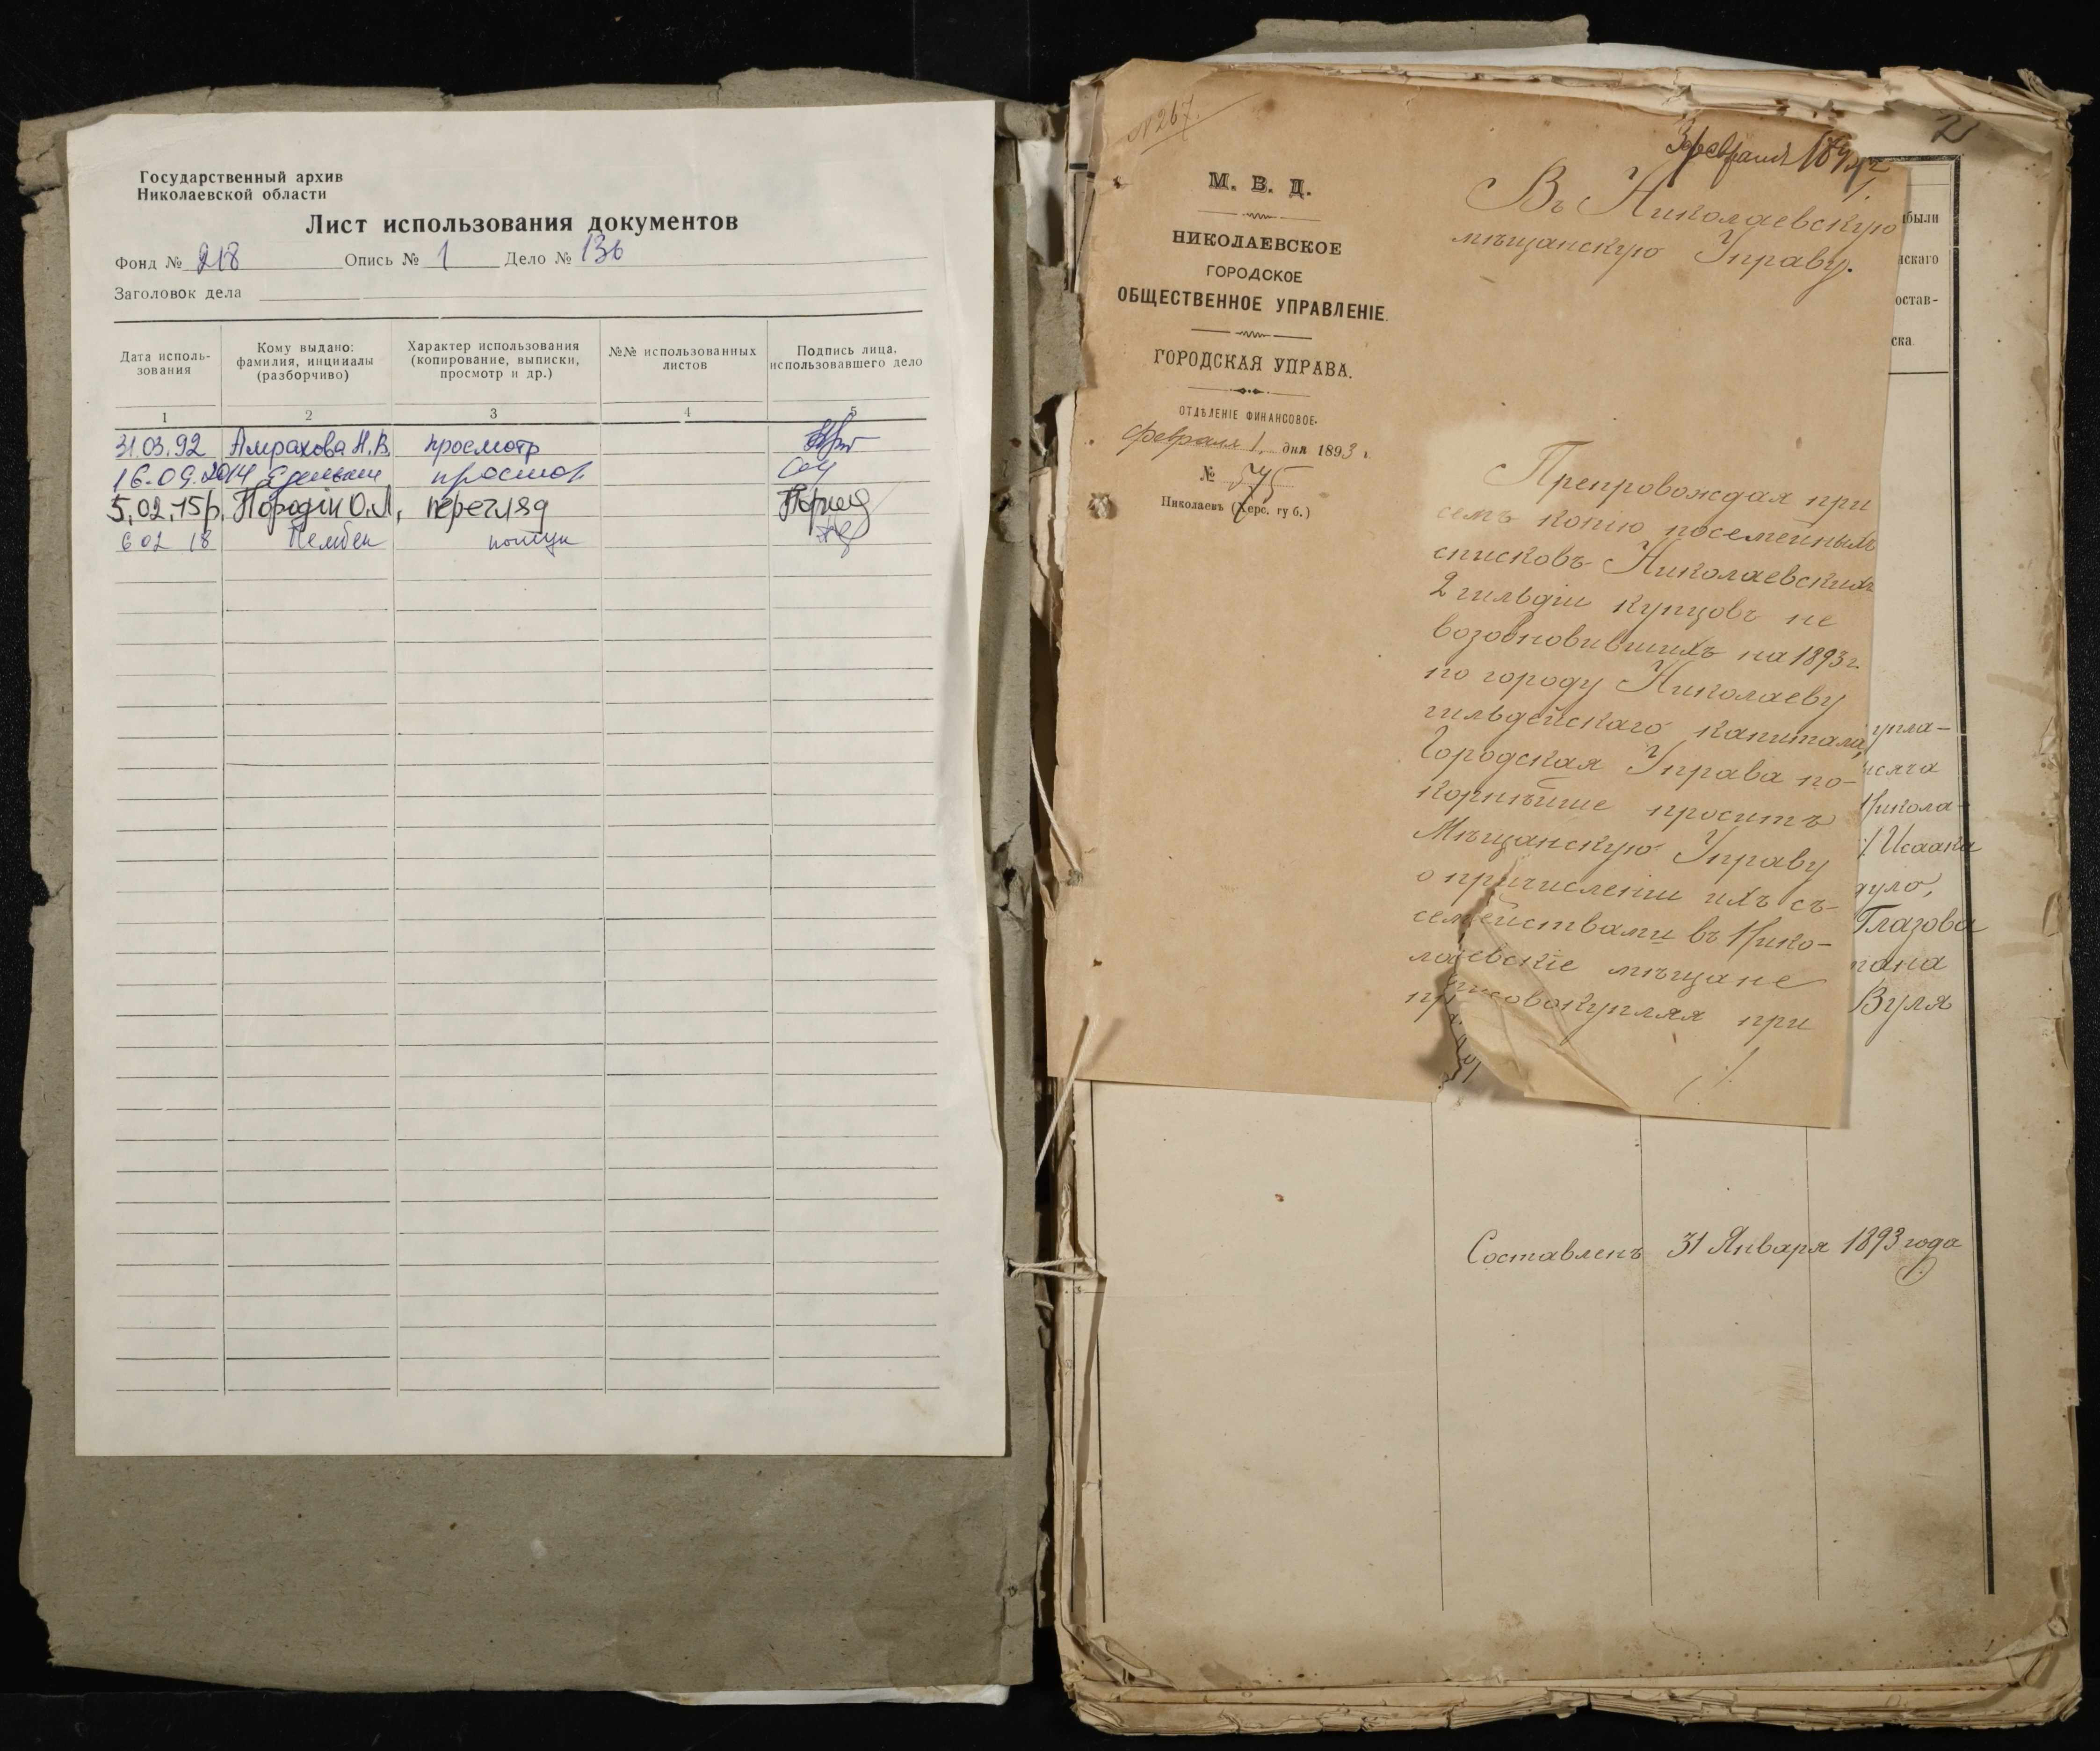 Государственный архив
Николаевской области
Лист использования документов
Фонд № 218 Опись № 1 Дело № 136
Заголовок дела
Дата исполь-
зования
Кому выдано:
фамилия, инциалы
(разборчиво)
Характер использования
(копирование, выписки,
просмотр и др.)
№№ использованных
листов
Подпись лица,
использовавшего дело
1 2 3 4 5
31.03.92 Амрахова Н.В. просмотр
16.09.2014 просмотр
5.02.15р. Породін О.Л. перегляд
6 02 18 пошук
№ 267.
2
3 февраля
М. В. Д.
НИКОЛАЕВСКОЕ
ГОРОДСКОЕ
ОБЩЕСТВЕННОЕ УПРАВЛЕНІЕ.
ГОРОДСКАЯ УПРАВА.
ОТДѢЛЕНІЕ ФИНАНСОВОЕ.
февраля 1 дня 1893 г.
№ 575
Николаевъ (Херс. губ.)
Въ Николаевскую
мѣщанскую Управу.
Препровождая при
семъ копію посемейныхъ
списковъ Николаевскихъ
2 гильдіи купцовъ не
возобновившихъ на 1893 г.
по городу Николаеву
гильдейскаго капитала,
Городская Управа по-
корнѣйше проситъ
Мѣщанскую Управу
о причисленіи ихъ съ
семействами въ Нико-
лаевскіе мѣщане
присовокупляя при
были
скаго
остав-
ска.
упла-
Никола-
Исаака
дуло,
Глазова
Вуля
Составленъ 31 Января 1893 года